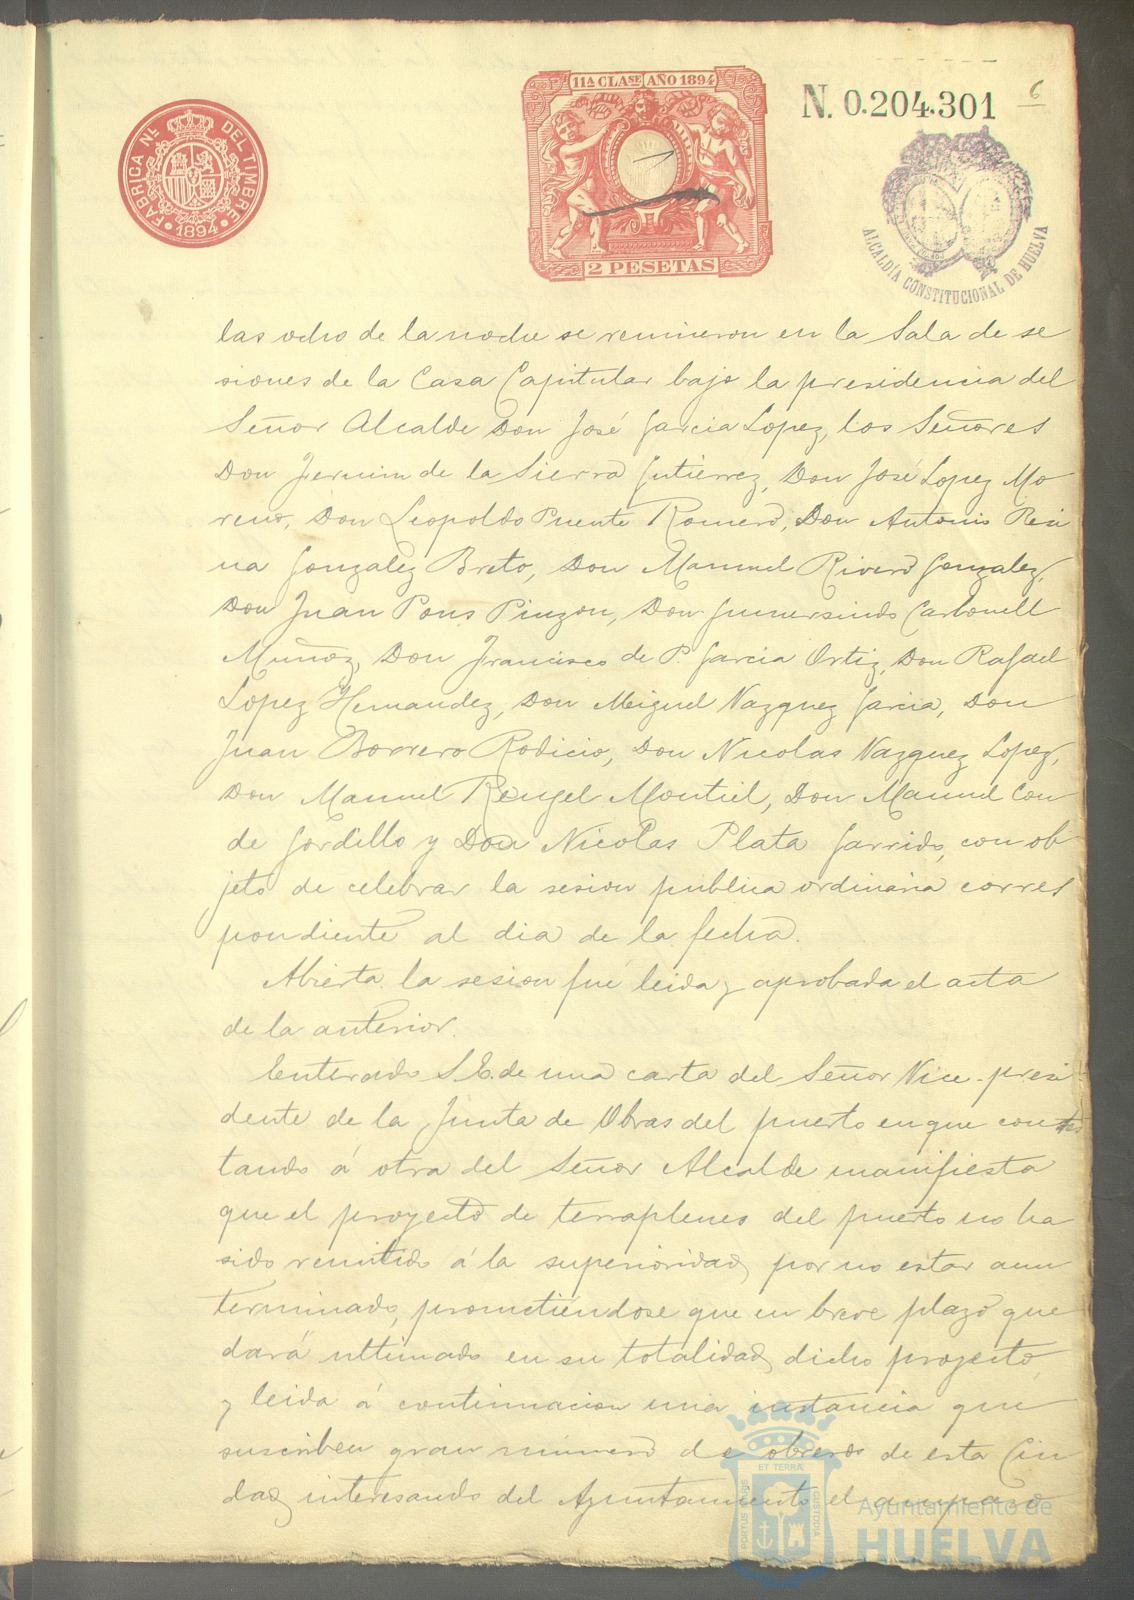 11A CLASE AÑO 1894
2 PESETAS
FABRICA NL. DEL TIMBRE
1894
N. 0.204.301
6
ALCALDÍA CONSTITUCIONAL DE HUELVA
las ocho de la noche se reunieron en la Sala de se
siones de la Casa Capitular bajo la presidencia del
Señor Alcalde Don José Garcia Lopez, los Señores
Don Fermin de la Sierra Gutiérrez, Don José Lopez Mo
reno, Don Leopoldo Puente Romero, Don Antonio Resi
na Gonzalez Breto, Don Manuel Rivero Gonzalez,
Don Juan Pons Pinzon, Don Gumersindo Carbonell
Muñoz, Don Francisco de P. Garcia Ortiz, Don Rafael
Lopez Hernandez, Don Miguel Vazquez Garcia, Don
Juan Borrero Rodicio, Don Nicolas Vazquez Lopez,
Don Manuel Rengel Montiel, Don Manuel Con
de Gordillo y Don Nicolas Plata Garrido, con ob
jeto de celebrar la sesion publica ordinaria corres
pondiente al dia de la fecha.
Abierta la sesion fué leida y aprobada el acta
de la anterior.
Enterado S.E. de una carta del Señor Vice-presi
dente de la Junta de Obras del puerto en que contes
tando á otra del Señor Alcalde manifiesta
que el proyecto de terraplenes del puerto no ha
sido remitido á la superioridad, por no estar aun
terminado, prometiéndose que en breve plazo que
dará ultimado en su totalidad dicho proyecto,
y leida á continuacion una instancia que
suscriben gran número de obreros de esta Ciu
dad interesando del Ayuntamiento el amparo
ET TERRÆ
PORTUS MARIS
CUSTODIA
Ayuntamiento de
HUELVA